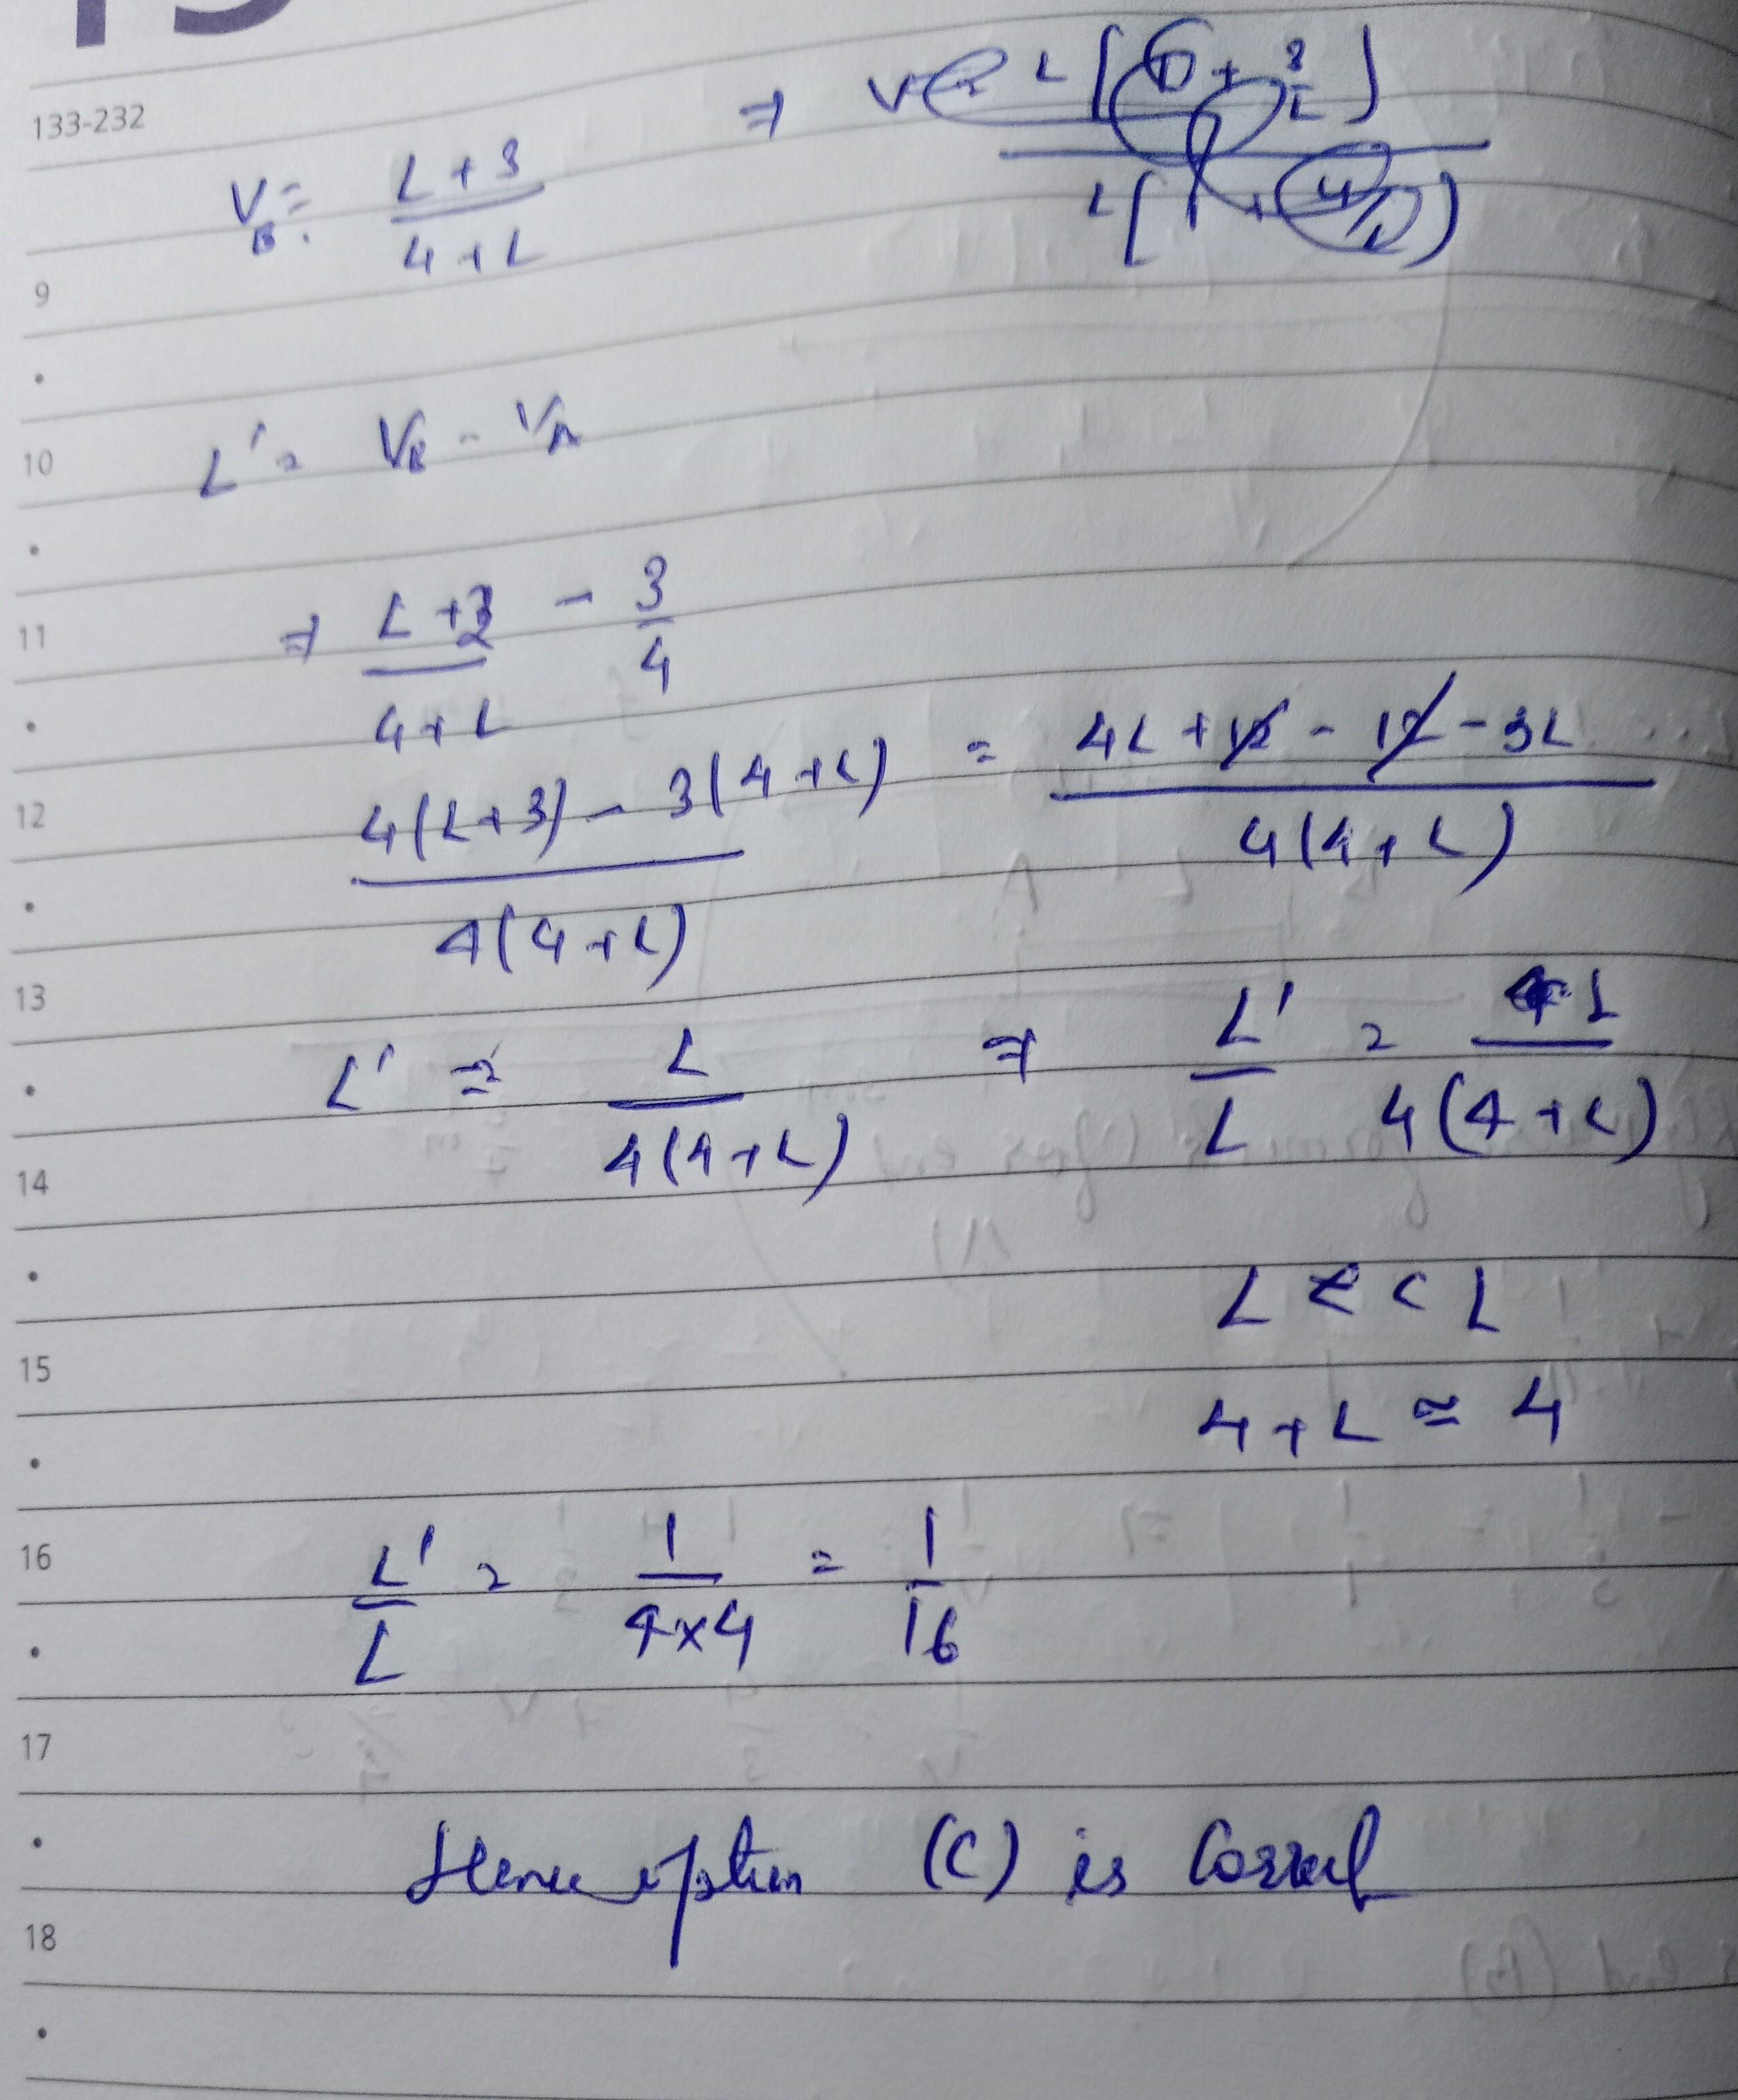 133-232
V_B = (L + 3)/(4 + L) ⇒
9
10 L' = V_B - V_A
11 ⇒ (L + 3)/(4 + L) - 3/4
12 (4(L + 3) - 3(4 + L))/(4(4 + L)) = (4L + 12 - 12 - 3L)/(4(4 + L))
13
L' = L/(4(4 + L)) ⇒ L'/L = 1/(4(4 + L))
14
L << L
15
4 + L ≈ 4
16 L'/L = 1/(4×4) = 1/16
17
Hence option (C) is Correct
18